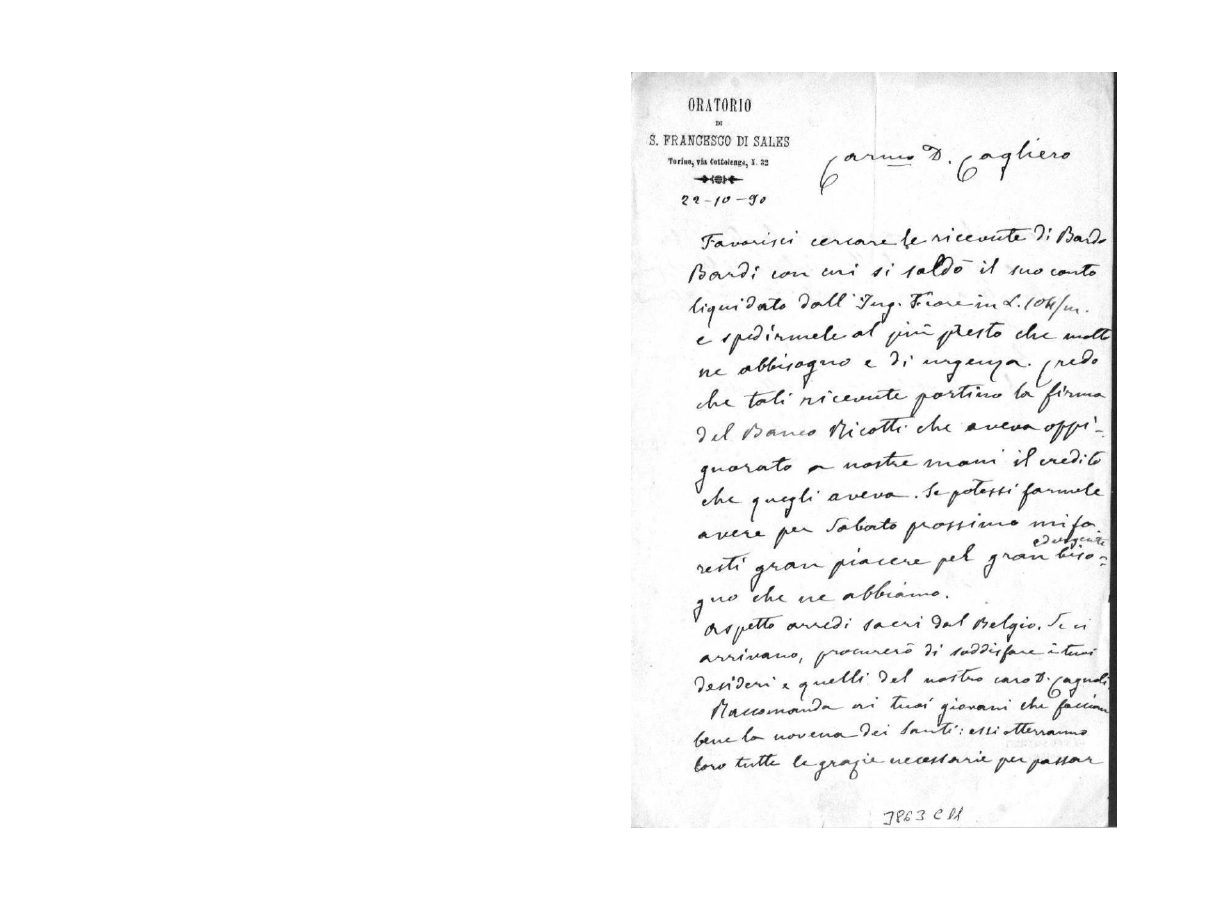 ORATORIO
DI
S. FRANCESCO DI SALES
Torino, via Cottolengo, N. 32
22-10-90
Carmo D. Cagliero
Favorisci cercare le ricevute di Bardo
Bardi con cui si saldò il suo conto
liquidato dall'Ing. Fiore in L. 104/m.
e spedirmele al più presto che molt
ne abbisogno e di urgenza. Credo
che tali ricevute portino la firma
del Banco Ricotti che aveva oppi-
gnorato a nostre mani il credito
che quegli aveva. Se potessi farmele
avere per Sabato prossimo mi fa
ed urgente
resti gran piacere pel gran biso=
gno che ne abbiamo.
Aspetto arredi sacri dal Belgio. Se ci
arrivano, procurerò di soddisfare i tuoi
desideri e quelli del nostro caro D.
Raccomanda ai tuoi giovani che faccian
bene la novena dei Santi: essi otterranno
loro tutte le grazie necessarie per passar